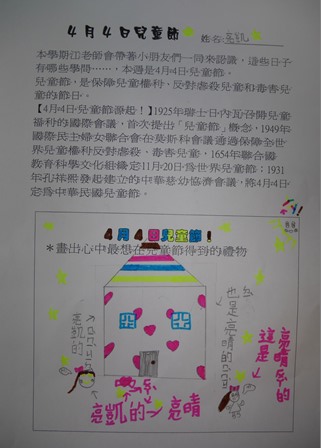 4月4日兒童節 姓名:亮凱
本學期江老師會帶著小朋友們一同來認識，這些日子
有哪些學問……，本週是4月4日-兒童節。
兒童節，是保障兒童權利，反對虐殺兒童和毒害兒
童的節日。
【4月4日-兒童節源起！】1925年瑞士日內瓦召開兒童
福利的國際會議，首次提出「兒童節」概念，1949年
國際民主婦女聯合會在莫斯科會議通過保障全世
界兒童權利反對虐殺、毒害兒童，1654年聯合國
教育科學文化組織定11月20日為世界兒童節；1931
年孔祥熙發起建立的中華慈幼協濟會議，將4月4日
定為中華民國兒童節。
4月4日兒童節！
＊畫出心中最想在兒童節得到的禮物
亮凱的
也是亮晴的
亮晴
這是
亮凱的
亮晴